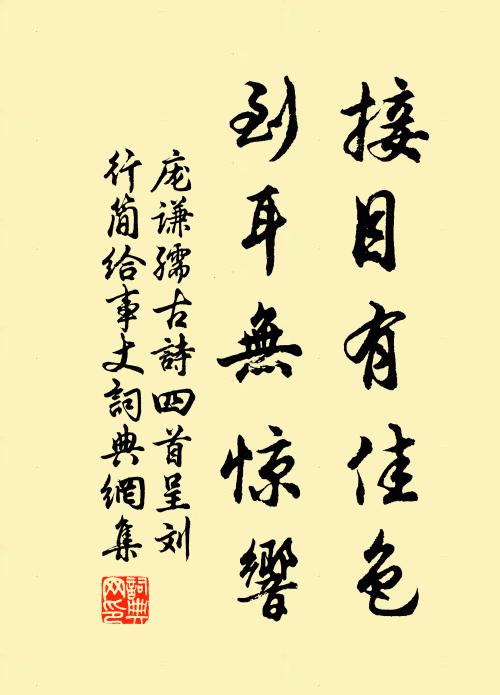 接目有佳色
到耳無惊響
庞谦孺古詩四首呈刘
行简给事丈詞典網集
詞典網印